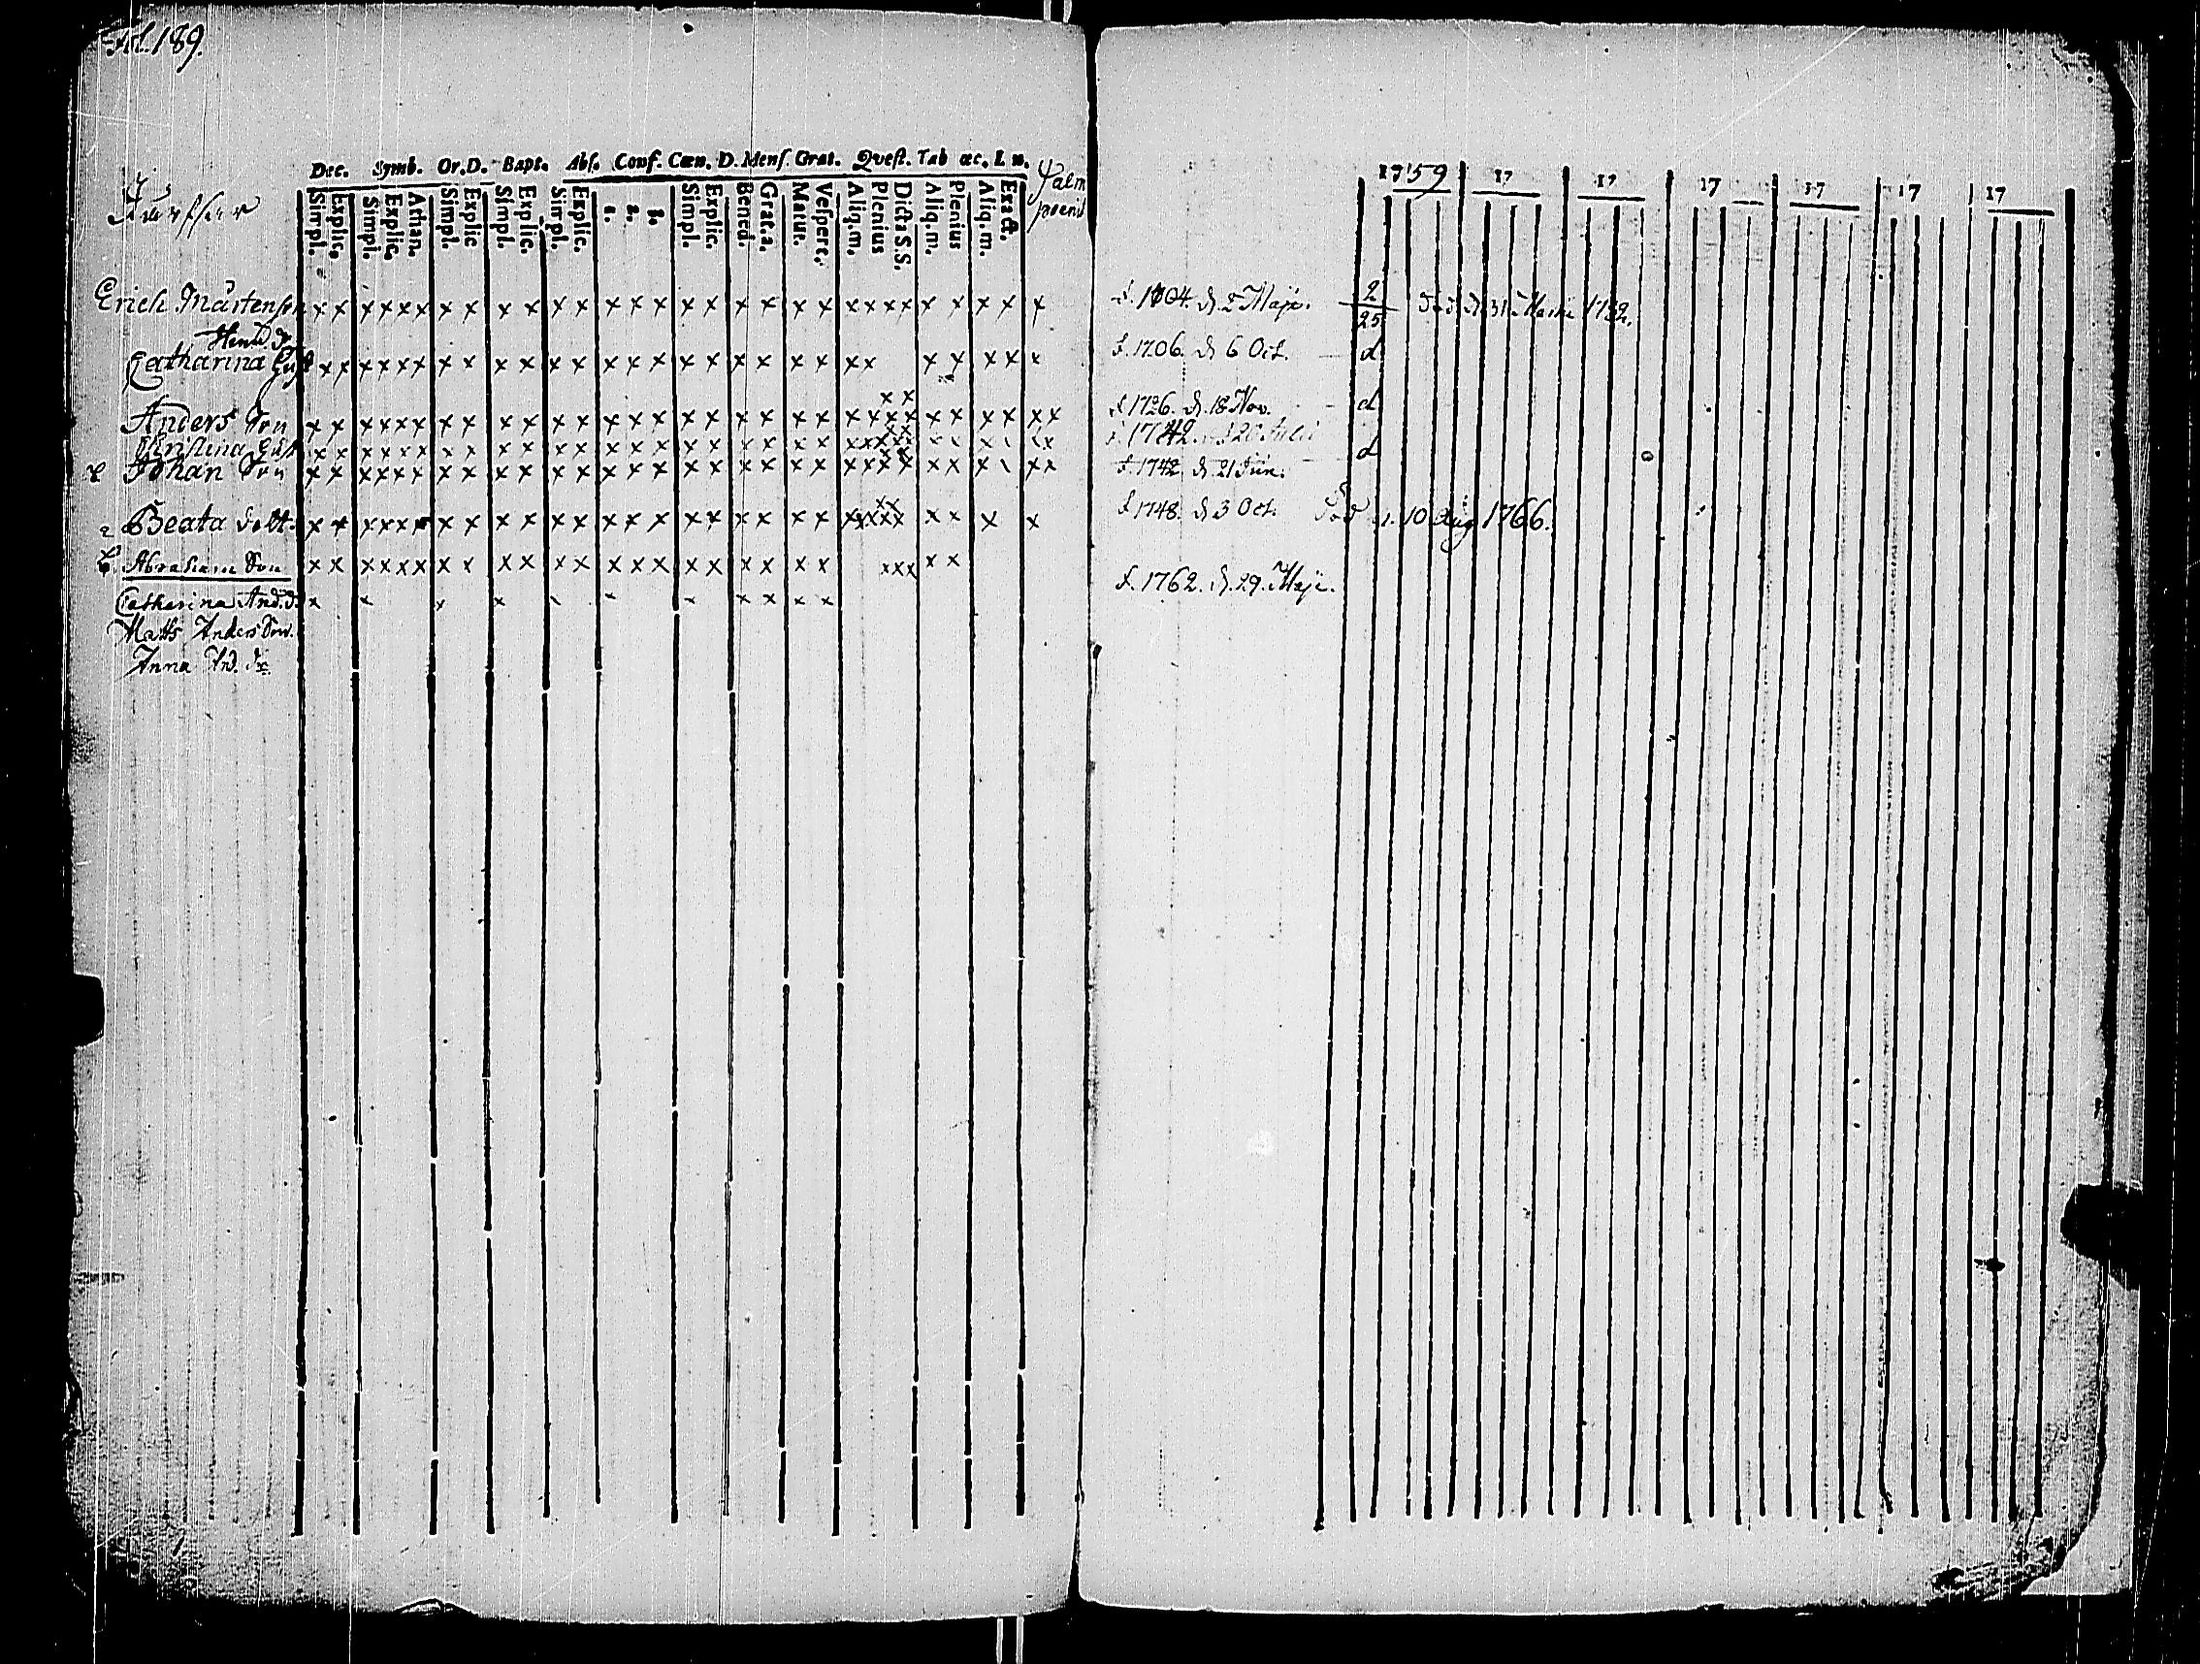 Fol. 189.
Dec. Symb. Or. D. Bapt. Abs. Conf. Cœn. D. Mens. Grat. Qvest. Tab œc. L n.
Simpl. Explic. Simpl. Explic. Athan. Simpl. Explic Simpl. Explic. Simpl. Explic. 1. 2. 3. Simpl. Explic. Bened. Grat. a. Matur. Vespere. Aliq. m. Plenius Dicta S.S. Aliq. m. Plenius Aliq. m. Exact.
1759 17 17 17 17 17 17
Erich Mårtenson x x x x x x x x x x x x x x x x x x x x x x x x x x x x x
f. 1704. d. 2 Maji. 2 25 Död d. 31 1782.
Hend. d.
Catharina x x x x x x x x x x x x x x x x x x x x x x x x x x x
f. 1706. d. 6 Oct. d
Anders Son x x x x x x x x x x x x x x x x x x x x x x x x x x x x x x
f. 1726. d. 18 Nov. d
Christina Gust
f. 1742. d. 20 Julii
Johan Son x x x x x x x x x x x x x x x x x x x x x x x x x x x x
f. 1742. d. 21 Jun. d
2 Beata dott. x x x x x x x x x x x x x x x x x x x x x x x x x x x x
f. 1748. d. 3 Oct. Död d. 10 Aug 1766.
Abraham Son x x x x x x x x x x x x x x x x x x x x x x x x x
Catharina And. d. x x x x x x x x x x
f. 1762. d. 29. Maji.
Matts Anders Son.
Anna And. dr